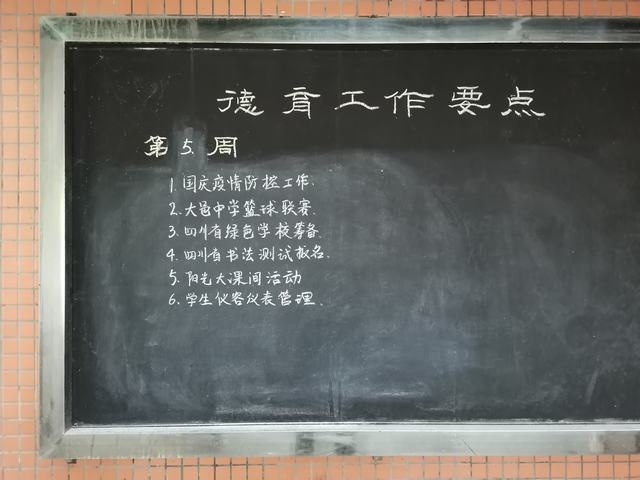 德育工作要点
第5周
1.国庆疫情防控工作.
2.大邑中学篮球联赛.
3.四川省绿色学校筹备.
4.四川省书法测试报名.
5.阳光大课间活动
6.学生仪容仪表管理.